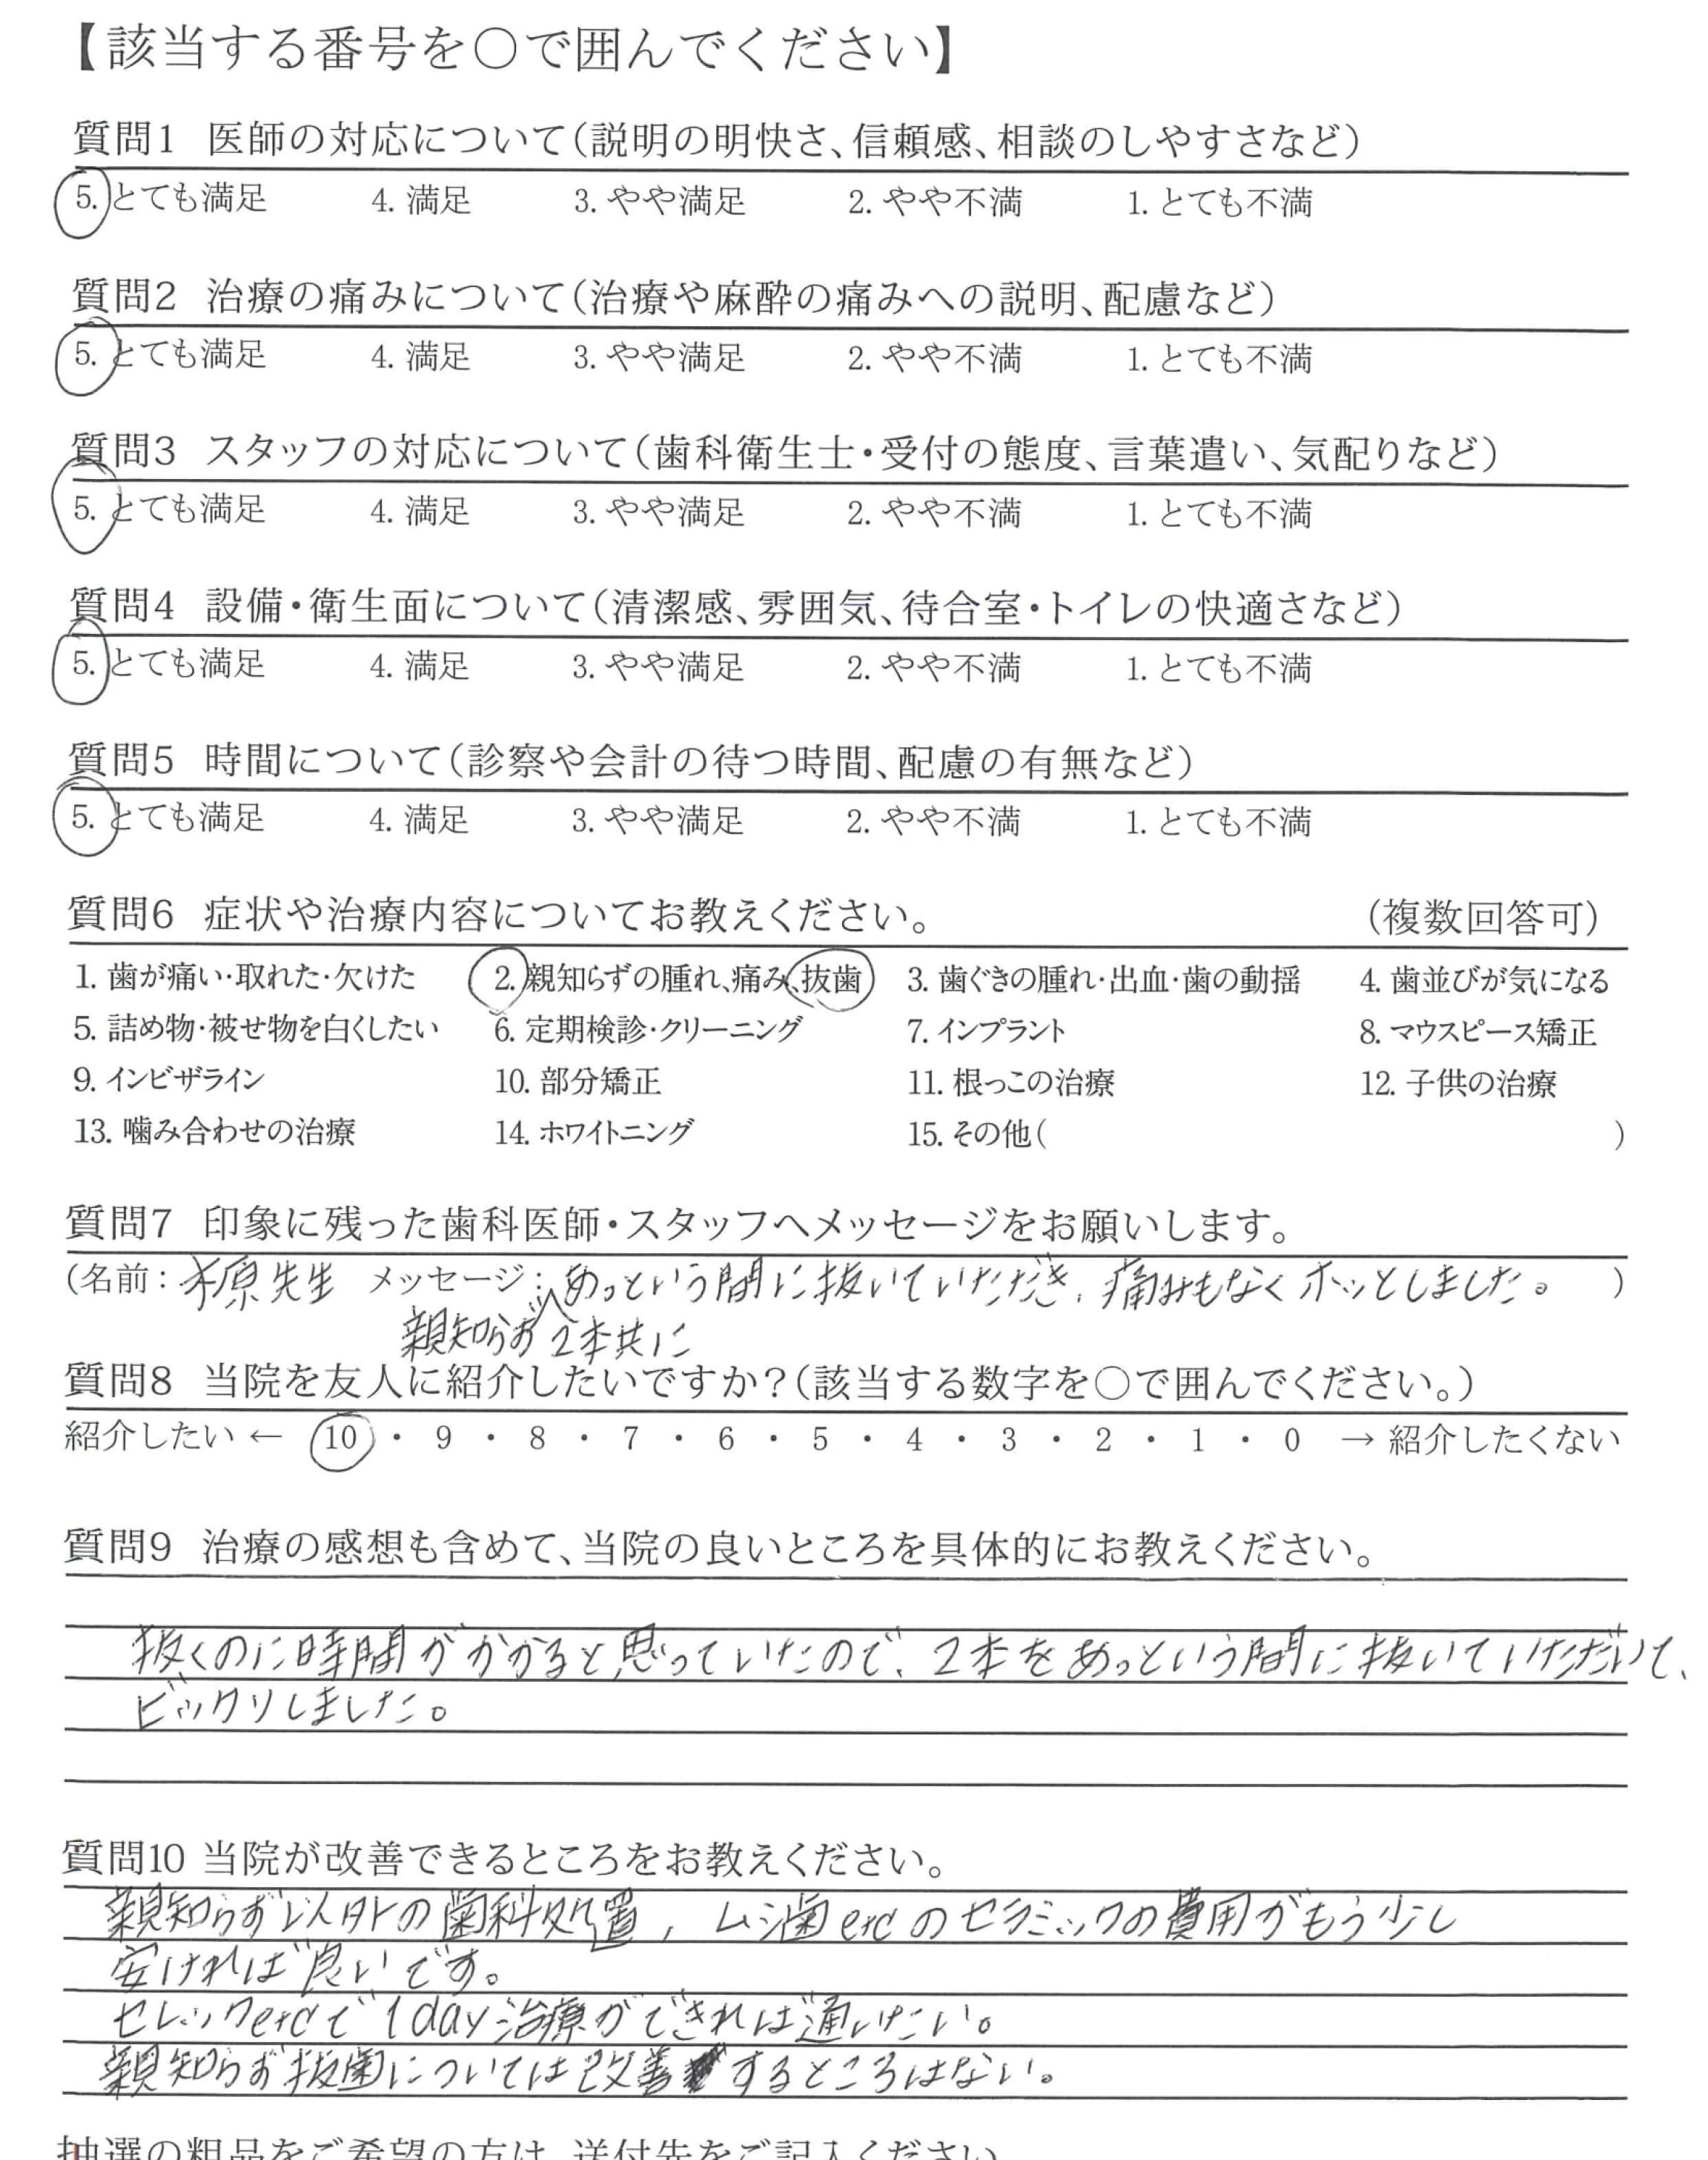 【該当する番号を〇で囲んでください】
質問1 医師の対応について(説明の明快さ、信頼感、相談のしやすさなど)
5. とても満足 4. 満足 3. やや満足 2. やや不満 1. とても不満
質問2 治療の痛みについて(治療や麻酔の痛みへの説明、配慮など)
5. とても満足 4. 満足 3. やや満足 2. やや不満 1. とても不満
質問3 スタッフの対応について(歯科衛生士・受付の態度、言葉遣い、気配りなど)
5. とても満足 4. 満足 3. やや満足 2. やや不満 1. とても不満
質問4 設備・衛生面について(清潔感、雰囲気、待合室・トイレの快適さなど)
5. とても満足 4. 満足 3. やや満足 2. やや不満 1. とても不満
質問5 時間について(診察や会計の待つ時間、配慮の有無など)
5. とても満足 4. 満足 3. やや満足 2. やや不満 1. とても不満
質問6 症状や治療内容についてお教えください。 (複数回答可)
1. 歯が痛い・取れた・欠けた 2. 親知らずの腫れ、痛み、抜歯 3. 歯ぐきの腫れ・出血・歯の動揺 4. 歯並びが気になる
5. 詰め物・被せ物を白くしたい 6. 定期検診・クリーニング 7. インプラント 8. マウスピース矯正
9. インビザライン 10. 部分矯正 11. 根っこの治療 12. 子供の治療
13. 噛み合わせの治療 14. ホワイトニング 15. その他( )
質問7 印象に残った歯科医師・スタッフへメッセージをお願いします。
(名前: 木原先生 メッセージ: あっという間に抜いていただき、痛みもなくホッとしました。 )
親知らず2本共に
質問8 当院を友人に紹介したいですか?(該当する数字を〇で囲んでください。)
紹介したい ← 10 ・ 9 ・ 8 ・ 7 ・ 6 ・ 5 ・ 4 ・ 3 ・ 2 ・ 1 ・ 0 → 紹介したくない
質問9 治療の感想も含めて、当院の良いところを具体的にお教えください。
抜くのに時間がかかると思っていたので、2本をあっという間に抜いていただいて、
ビックリしました。
質問10 当院が改善できるところをお教えください。
親知らず以外の歯科処置、ムシ歯etcのセラミックの費用がもう少し
安ければ良いです。
セレックetcで1day治療ができれば通いたい。
親知らず抜歯については改善するところはない。
抽選の粗品をご希望の方は、送付先をご記入ください